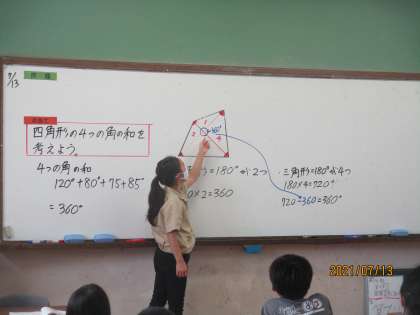 7/13
四角形の4つの角の和を
考えよう。
4つの角の和
120°+80°+75+85°
=360°
1
2
3
4
360°
=180°が2つ
×2=360
・三角形=180°が4つ
180×4=720°
720-360=360°
2021/07/13